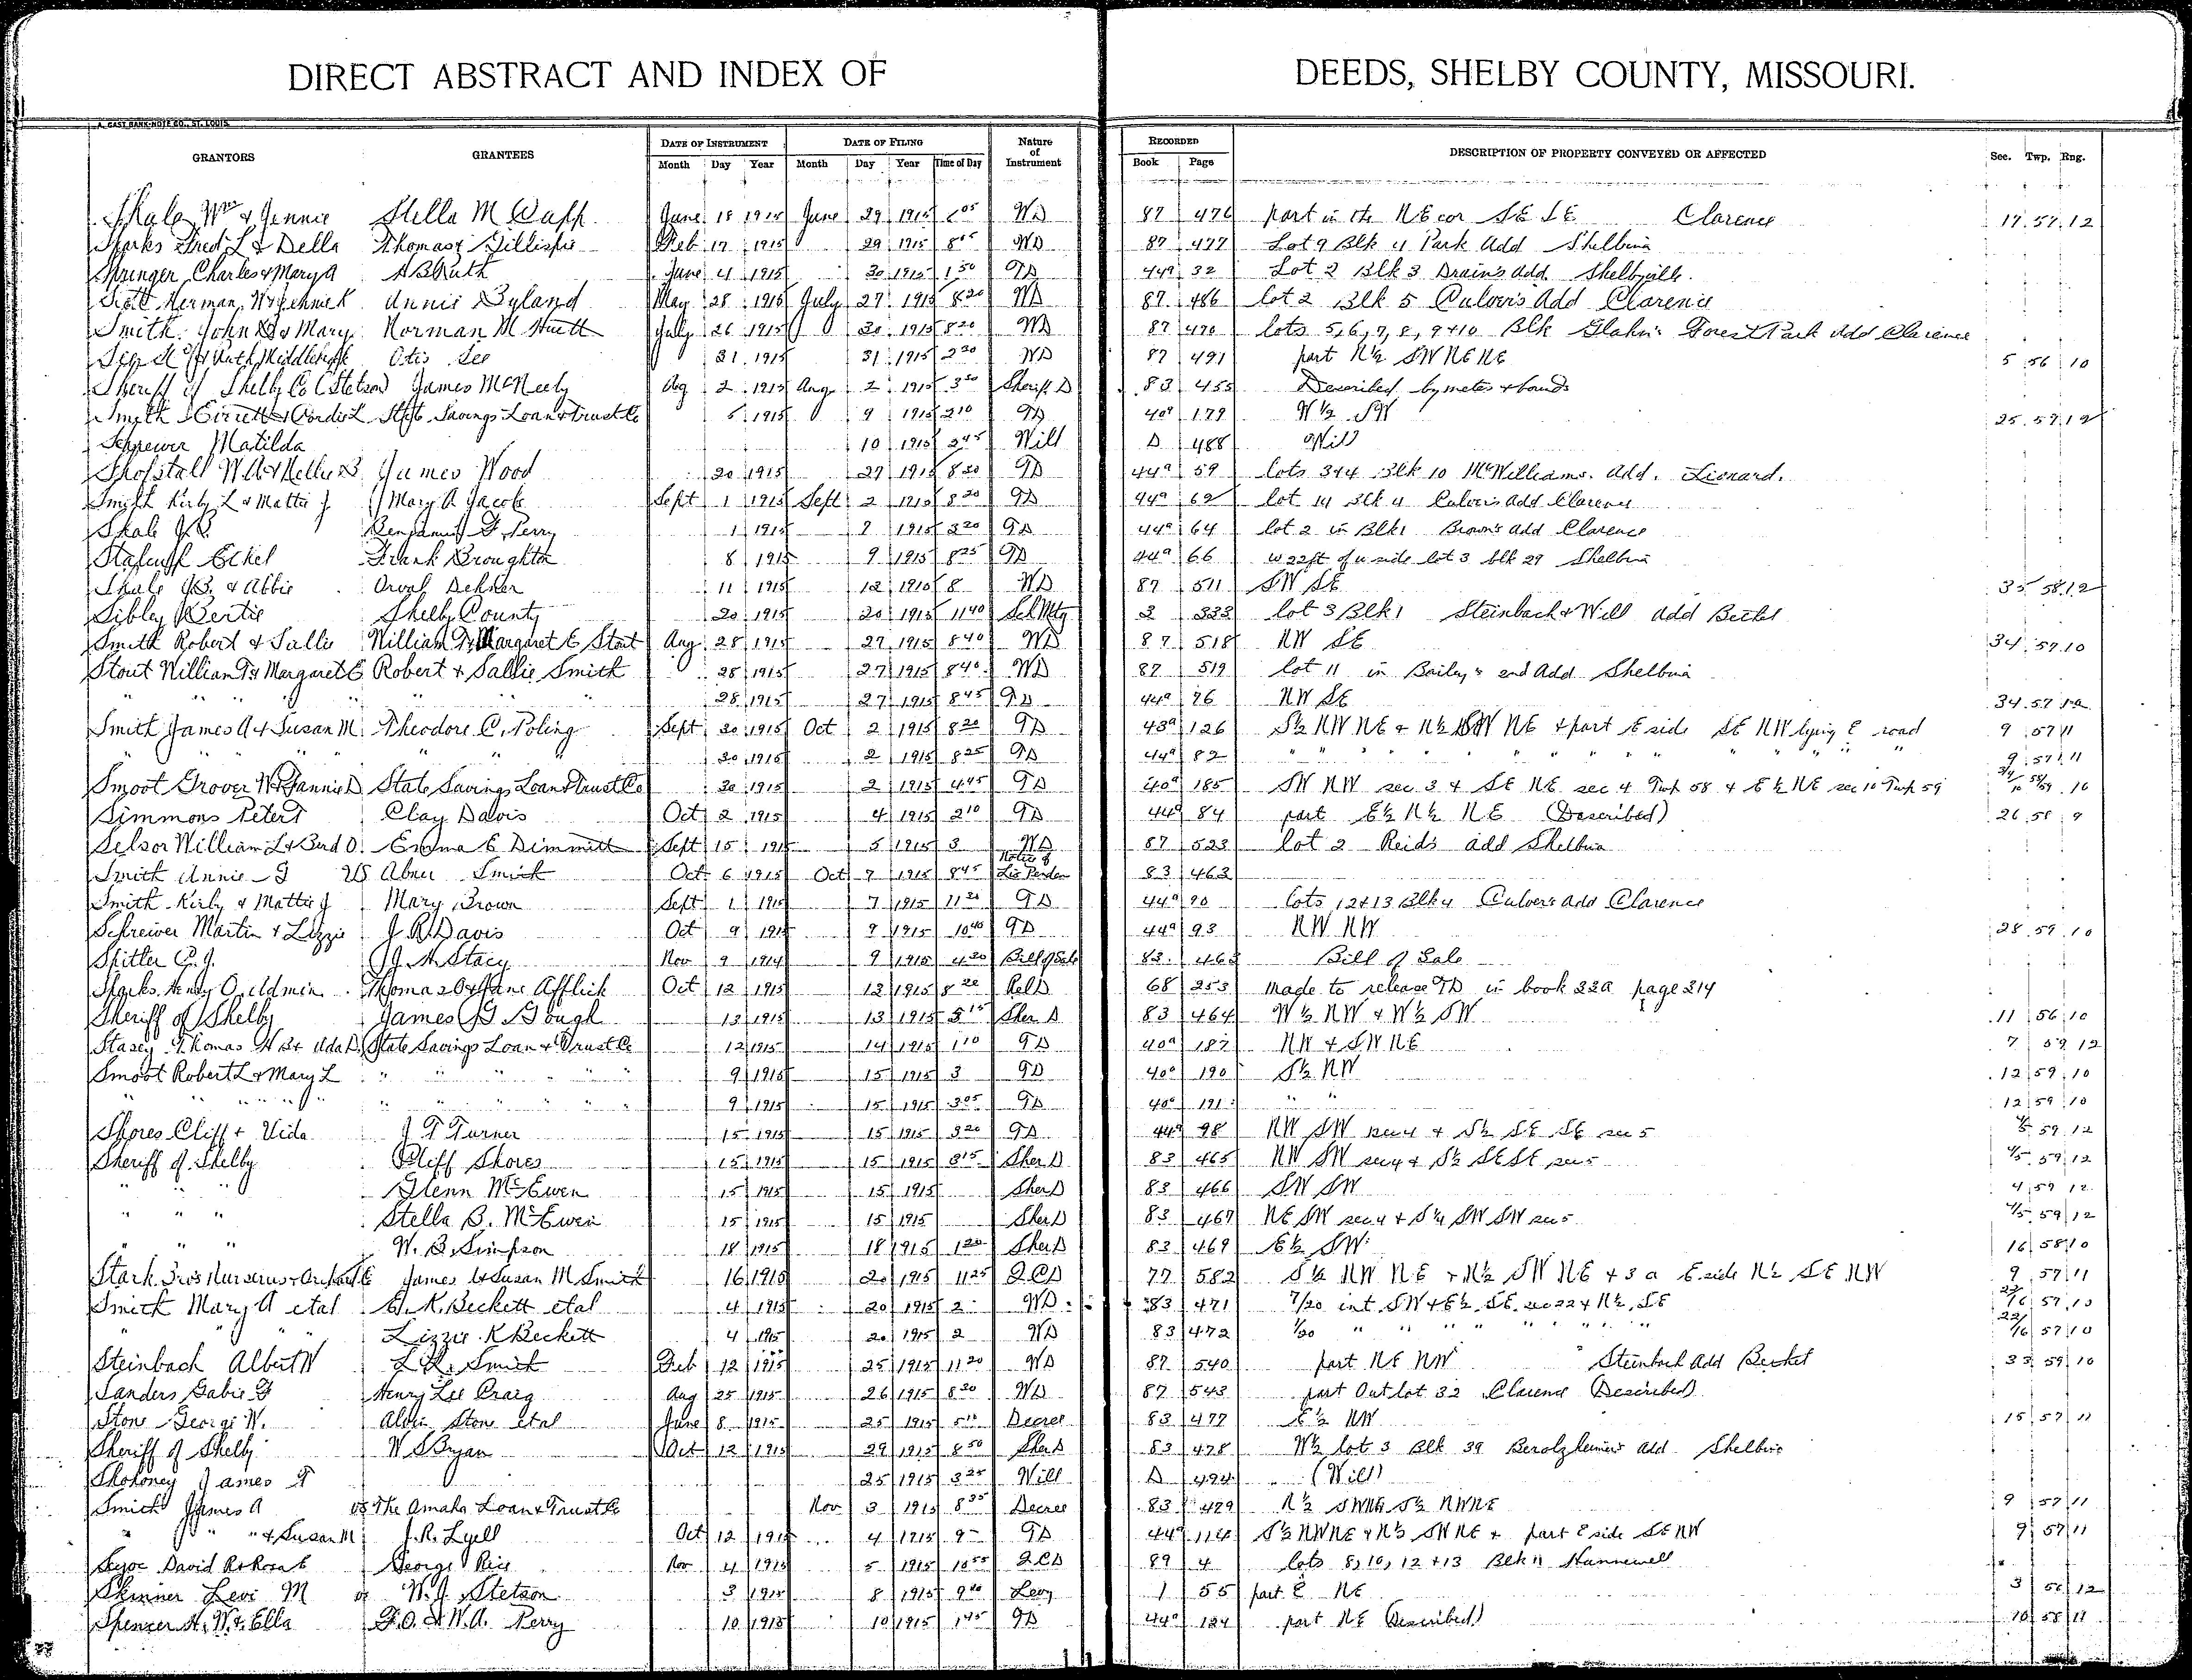 DIRECT ABSTRACT AND INDEX OF DEEDS, SHELBY COUNTY, MISSOURI.
A. GAST BANK-NOTE CO., ST. LOUIS.
GRANTORS GRANTEES DATE OF INSTRUMENT DATE OF FILING Nature of Instrument RECORDED DESCRIPTION OF PROPERTY CONVEYED OR AFFECTED Sec. Twp. Rng.
Month Day Year Month Day Year Time of Day Book Page
Skale Wm & Jennie Stella M June 18 1915 June 29 1915 WD 87 476 part in the NE cor SE SE Clarence 17 57 12
Sparks Fred L & Della Thomas Gillispie Feb 17 1915 29 1915 8 05 WD 87 477 Lot 9 Blk 4 Park Add Shelbina
Springer Charles & Mary A A B Ruth June 4 1915 30 1915 1 50 TD 44a 32 Lot 2 Blk 3 Drain's add Shelbyville
Herman W & Jennie K Annie Byland May 28 1915 July 27 1915 8 20 WD 87 486 lot 2 Blk 5 Culver's Add Clarence
Smith John & Mary Norman M Huett July 26 1915 30 1915 8 20 WD 87 490 lots 5,6,7,8,9 & 10 Blk Glahn's Forest Park Add Clarence
Otis See 31 1915 31 1915 2 30 WD 87 491 part N½ SW NE NE 5 56 10
Sheriff of Shelby Co (Stetson) James McNeely Aug 2 1915 Aug 2 1915 3 30 Sheriff D 83 455 Described by metes & bounds
Smith & Cordie L State Savings Loan & Trust Co 5 1915 9 1915 2 10 TD 40a 179 W½ SW 25 57 12
Schrewer Matilda 10 1915 2 45 Will D 488 Will
Shofstall W A & Nellie B James Wood 20 1915 27 1915 8 30 TD 44a 59 lots 3 & 4 Blk 10 McWilliams Add. Leonard.
Smith Kirby L & Mattie J Mary A Jacobs Sept 1 1915 Sept 2 1915 8 20 TD 44a 62 lot 14 Blk 4 Culver's add Clarence
Skale J.B. Benjamin F Perry 1 1915 7 1915 3 20 TD 44a 64 lot 2 in Blk 1 Brown's add Clarence
Ethel Frank Broughton 8 1915 9 1915 8 25 TD 44a 66 w 22 ft of n side lot 3 blk 29 Shelbina
Skale J.B. & Abbie Orval Dehner 11 1915 12 1915 8 WD 87 511 SW SE 35 58 12
Sibley Bertie Shelby County 20 1915 20 1915 11 40 Sch Mtg 3 333 lot 3 Blk 1 Steinbach & Will add Bethel
Smith Robert & Sallie William T & Margaret E Stout Aug 28 1915 27 1915 8 40 WD 87 518 NW SE 34 57 10
Stout William T & Margaret E Robert & Sallie Smith 28 1915 27 1915 8 40 WD 87 519 lot 11 in Bailey's 2nd Add Shelbina
" " " " " " " 28 1915 27 1915 8 45 TD 44a 76 NW SE 34 57 10
Smith James A & Susan M Theodore C. Poling Sept 30 1915 Oct 2 1915 8 20 TD 43a 126 S½ NW NE & N½ SW NE & part E side SE NW lying E road 9 57 11
" " " " " 30 1915 2 1915 8 25 TD 44a 82 " " " " " " " " 9 57 11
Smoot Grover W & Fannie D State Savings Loan & Trust Co 30 1915 2 1915 4 45 TD 40a 185 SW NW sec 3 & SE NE sec 4 Twp 58 & E½ NE sec 10 Twp 59 3/4 10 58/59 10
Simmons Peter T Clay Davis Oct 2 1915 4 1915 2 10 TD 44a 84 part E½ N½ NE (Described) 26 58 9
Selsor William L & Burd O. Emma E Dimmitt Sept 15 1915 5 1915 3 WD 87 523 lot 2 Reid's add Shelbina
Smith Annie G VS Abner Smith Oct 6 1915 Oct 7 1915 8 45 Notice of Lis Penden 83 463
Smith Kirby & Mattie J Mary Brown Sept 1 1915 7 1915 11 20 TD 44a 90 lots 12 & 13 Blk 4 Culver's add Clarence
Schreiver Martin & Lizzie J. R. Davis Oct 9 1915 9 1915 10 40 TD 44a 93 NW NW 28 59 10
Spitler C.J. J. A. Stacy Nov 9 1914 9 1915 4 30 Bill of Sale 83 463 Bill of Sale
Sparks Henry O. admin Thomas O & Jane Afflick Oct 12 1915 12 1915 8 20 Rel D 68 253 Made to release TD in book 22a page 214
Sheriff of Shelby James G Gough 13 1915 13 1915 Sher D 83 464 W½ NW & W½ SW 11 56 10
Stasey Thomas & Ida D. State Savings Loan & Trust Co 12 1915 14 1915 1 10 TD 40a 187 NW & SW NE 7 59 12
Smoot Robert L & Mary L " " " " " 9 1915 15 1915 3 TD 40a 190 S½ NW 12 59 10
" " " " " " " " " 9 1915 15 1915 3 05 TD 40a 191 " " 12 59 10
Shores Cliff & Vida J T Turner 15 1915 15 1915 3 20 TD 44a 98 NW SW sec 4 & S½ SE SE sec 5 4/5 59 12
Sheriff of Shelby Cliff Shores 15 1915 15 1915 3 15 Sher D 83 465 NW SW sec 4 & S½ SE SE sec 5 4/5 59 12
" " " Glenn McEwen 15 1915 15 1915 Sher D 83 466 SW SW 4 59 12
" " " Stella B. McEwen 15 1915 15 1915 Sher D 83 467 NE SW sec 4 & SW SW sec 5 4/5 59 12
" " " W. B. Simpson 18 1915 18 1915 1 20 Sher D 83 469 E½ SW 16 58 10
Stark Bro's Nurseries & Orchard Co James & Susan M Smith 16 1915 20 1915 11 25 QCD 77 582 S½ NW NE & N½ SW NE & 3 a E side N½ SE NW 9 57 11
Smith Mary A etal K. Beckett etal 4 1915 20 1915 2 WD 83 471 7/20 int SW & E½ SE sec 22 & N½ SE 57 10
" " Lizzie K Beckett 4 1915 20 1915 2 WD 83 472 1/20 " " " " " " " 57 10
Steinbach Albert W L. R. Smith Feb 12 1915 25 1915 11 20 WD 87 540 part NE NW Steinbach Add Bethel 33 59 10
Sanders Gabie F Henry Lee Craig Aug 25 1915 26 1915 8 30 WD 87 543 part Out lot 32 Clarence (Described)
Stone George W. Alvin Stone etal June 8 1915 25 1915 Decree 83 477 E½ NW 15 57 11
Sheriff of Shelby W S Bryan Oct 12 1915 29 1915 8 50 Sher D 83 478 W½ lot 3 Blk 39 Berolzheimer's add Shelbina
James T 25 1915 3 25 Will D 494 (Will)
Smith James A vs The Omaha Loan & Trust Co Nov 3 1915 8 35 Decree 83 479 N½ SWNE S½ NWNE 9 57 11
" " " & Susan M J. R. Lyell Oct 12 1915 4 1915 9 TD 44a 114 S½ NWNE & N½ SWNE & part E side SENW 9 57 11
David R & Rosa E George Rice Nov 4 1915 5 1915 10 55 QCD 89 4 lots 8, 10, 12 & 13 Blk 11 Hunnewell
Skinner Levi M vs W. J. Stetson 3 1915 8 1915 Levy 1 55 part E NE 3 56 12
Spencer H. W. & Ella F. O. & W. A. Perry 10 1915 10 1915 1 45 TD 44a 124 part NE (Described) 10 58 11